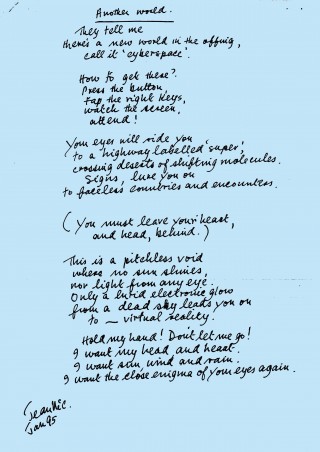 Another world.
They tell me
there's a new world in the offing,
call it 'cyberspace'.
How to get there?
Press the button,
tap the right keys,
watch the screen,
attend!
Your eyes will ride you
to a highway labelled 'super',
crossing deserts of shifting molecules.
Signs, lure you on
to faceless countries and encounters.
(You must leave your heart,
and head, behind.)
This is a pitchless void
where no sun shines,
nor light from any eye.
Only a lurid electronic glow
from a dead sky leads you on
to — virtual reality.
Hold my hand! Don't let me go!
I want my head and heart.
I want sun, wind and rain.
I want the close enigma of your eyes again.
Jan 95